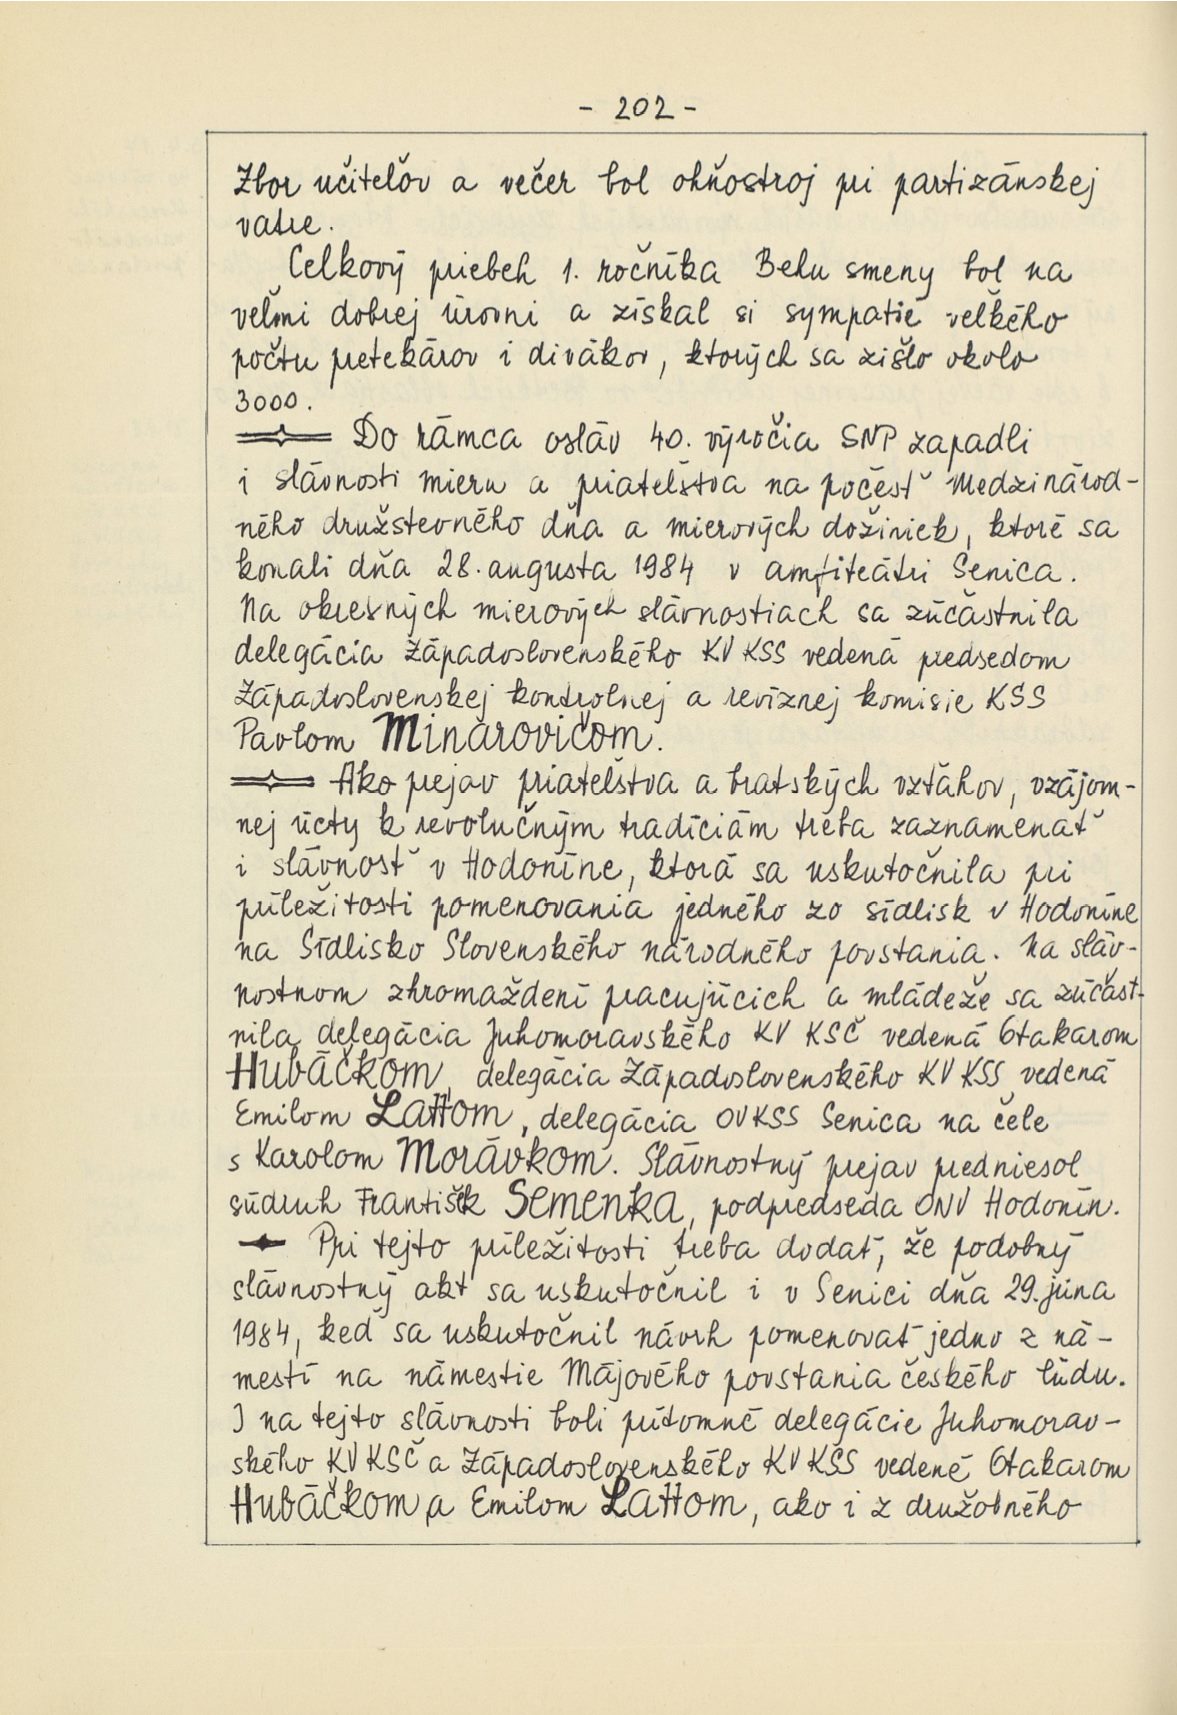 - 202 -
Zbor učiteľov a večer bol ohňostroj pri partizánskej
vatre.
Celkový priebeh 1. ročníka Behu smeny bol na
veľmi dobrej úrovni a získal si sympatie veľkého
počtu pretekárov i divákov, ktorých sa zišlo okolo
3000.
Do rámca osláv 40. výročia SNP zapadli
i slávnosti mieru a priateľstva na počesť Medzinárod-
ného družstevného dňa a mierových dožiniek, ktoré sa
konali dňa 28. augusta 1984 v amfiteátri Senica.
Na okresných mierových slávnostiach sa zúčastnila
delegácia Západoslovenského KV KSS vedená predsedom
Západoslovenskej kontrolnej a revíznej komisie KSS
Pavlom Minarovičom.
Ako prejav priateľstva a bratských vzťahov, vzájom-
nej úcty k revolučným tradíciám treba zaznamenať
i slávnosť v Hodoníne, ktorá sa uskutočnila pri
príležitosti pomenovania jedného zo sídlisk v Hodoníne
na Sídlisko Slovenského národného povstania. Na sláv-
nostnom zhromaždení pracujúcich a mládeže sa zúčast-
nila delegácia Juhomoravského KV KSČ vedená Otakarom
Hubáčkom, delegácia Západoslovenského KV KSS vedená
Emilom Lattom, delegácia OV KSS Senica na čele
s Karolom Morávkom. Slávnostný prejav predniesol
súdruh František Semenka, podpredseda ONV Hodonín.
Pri tejto príležitosti treba dodať, že podobný
slávnostný akt sa uskutočnil i v Senici dňa 29. júna
1984, keď sa uskutočnil návrh pomenovať jedno z ná-
mestí na námestie Májového povstania českého ľudu.
I na tejto slávnosti boli prítomné delegácie Juhomorav-
ského KV KSČ a Západoslovenského KV KSS vedené Otakarom
Hubáčkom a Emilom Lattom, ako i z družobného